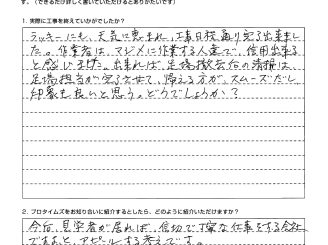 す。（できるだけ詳しく書いていただけるとありがたいです）
1. 実際に工事を終えていかがでしたか？
ラッキーにも、天気に恵まれ、工事日程通り完了出来まし
た。作業者は、マジメに作業する人達で、信用出来る
と感じました。出来れば、足場撤去后の清掃は
足場担当が完了させて、帰える方が、スムーズだし
印象も良いと思う。どうでしょうか？
2. プロタイムズをお知り合いに紹介するとしたら、どのように紹介いただけますか？
今后、見学者が居れば、親切で丁寧な仕事をする会社
ですよと、アピールする考えです。